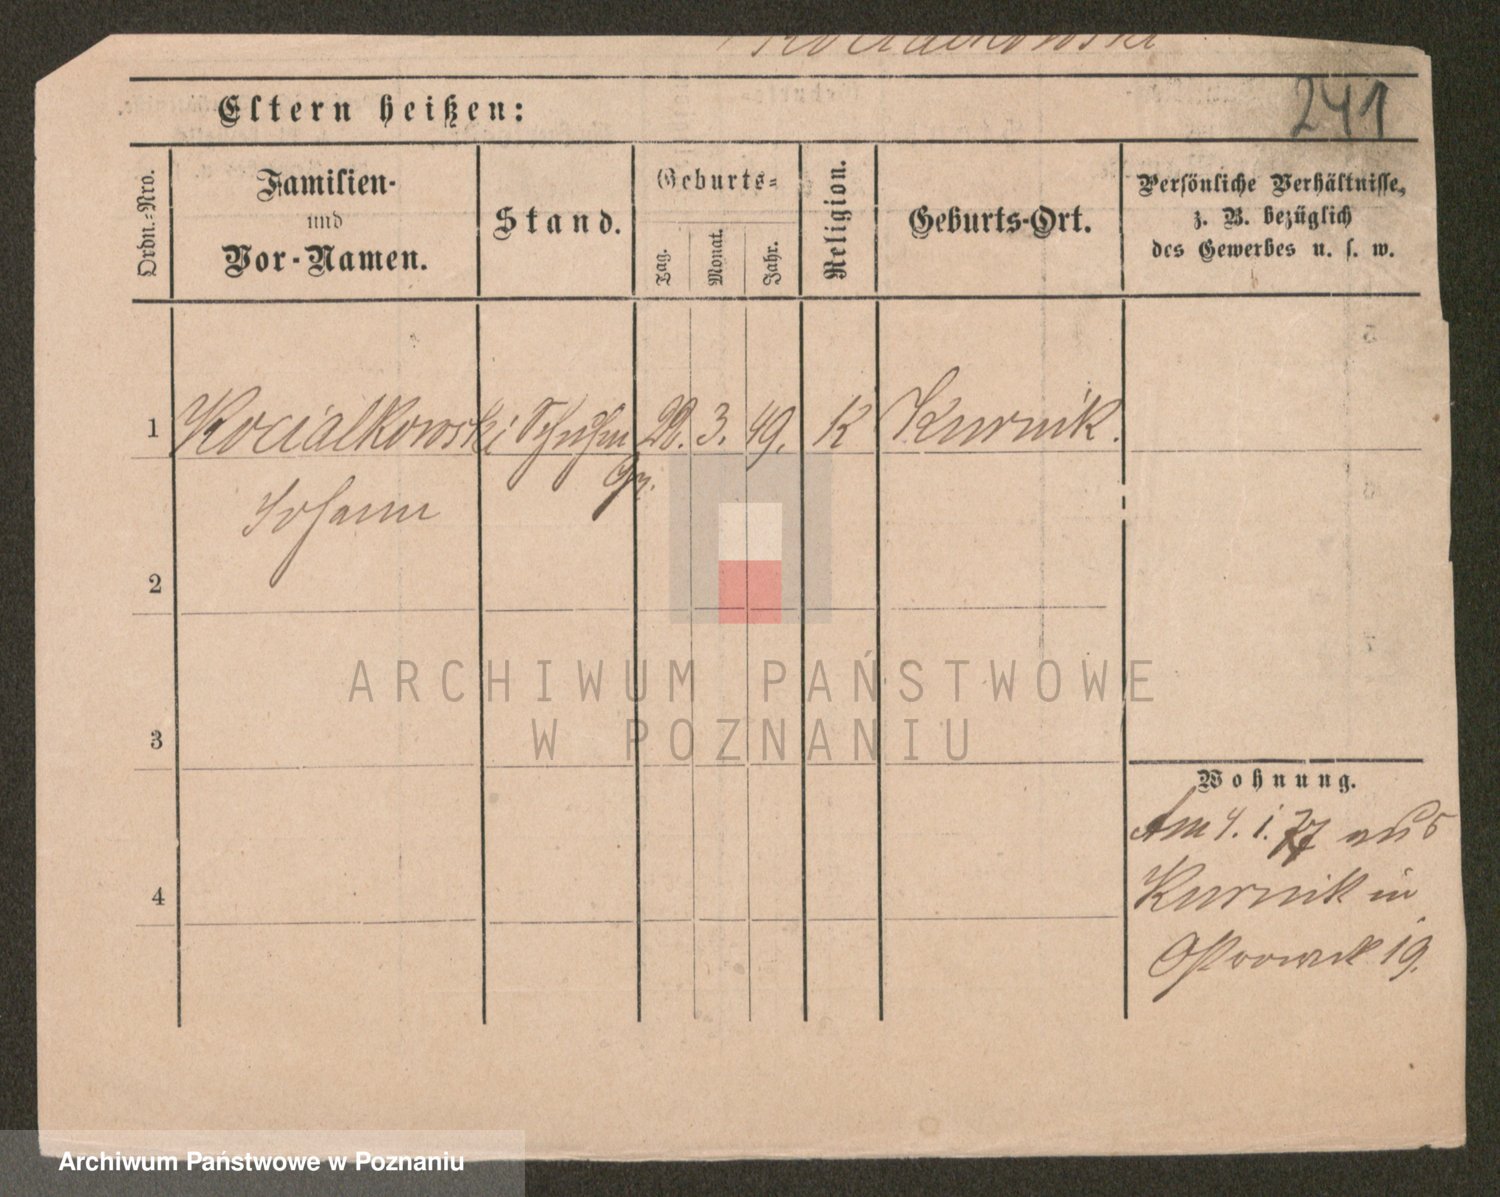 Kocialkowski
241
Eltern heißen:
Ordn.=Nro.
Familien-
und
Vor-Namen.
Stand.
Geburts=
Tag.
Monat.
Jahr.
Religion.
Geburts-Ort.
Persönliche Verhältnisse,
z. B. bezüglich
des Gewerbes u. s. w.
1 Kocialkowski 22. 3. 49. K Kurnik.
Johann
2
3
4
Wohnung.
Am 4. 1. 77 aus
Kurnik in
Ostrowek 19.
ARCHIWUM PAŃSTWOWE
W POZNANIU
Archiwum Państwowe w Poznaniu